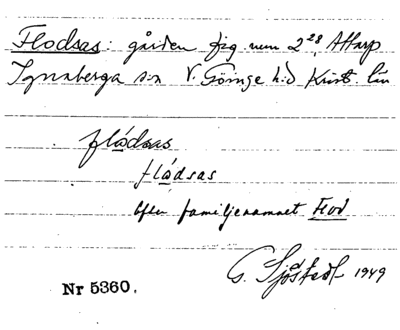 Flodsas: gården fig num 2²⁸, Attarp
Ignaberga s:n V. Göinge h:d Krist. län
flådsas
flådsas
Efter familjenamnet Flod
G. Sjöstedt 1949
Nr 5360.